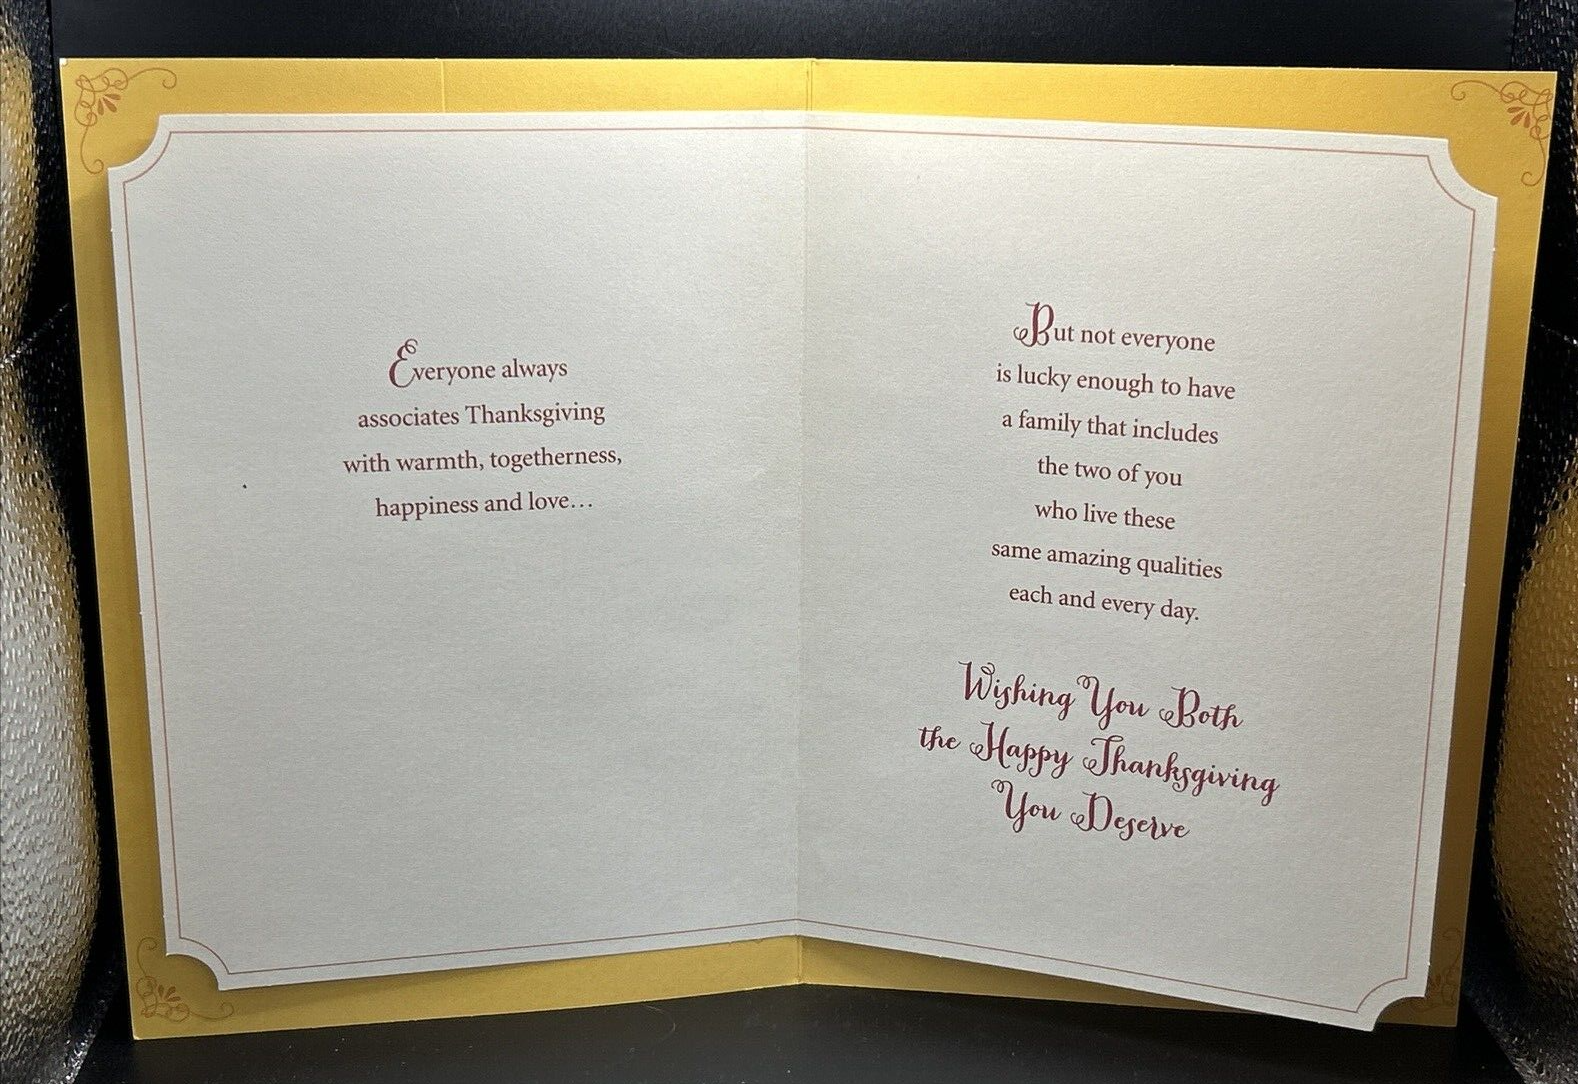 Everyone always
associates Thanksgiving
with warmth, togetherness,
happiness and love...
But not everyone
is lucky enough to have
a family that includes
the two of you
who live these
same amazing qualities
each and every day.
Wishing You Both
the Happy Thanksgiving
You Deserve